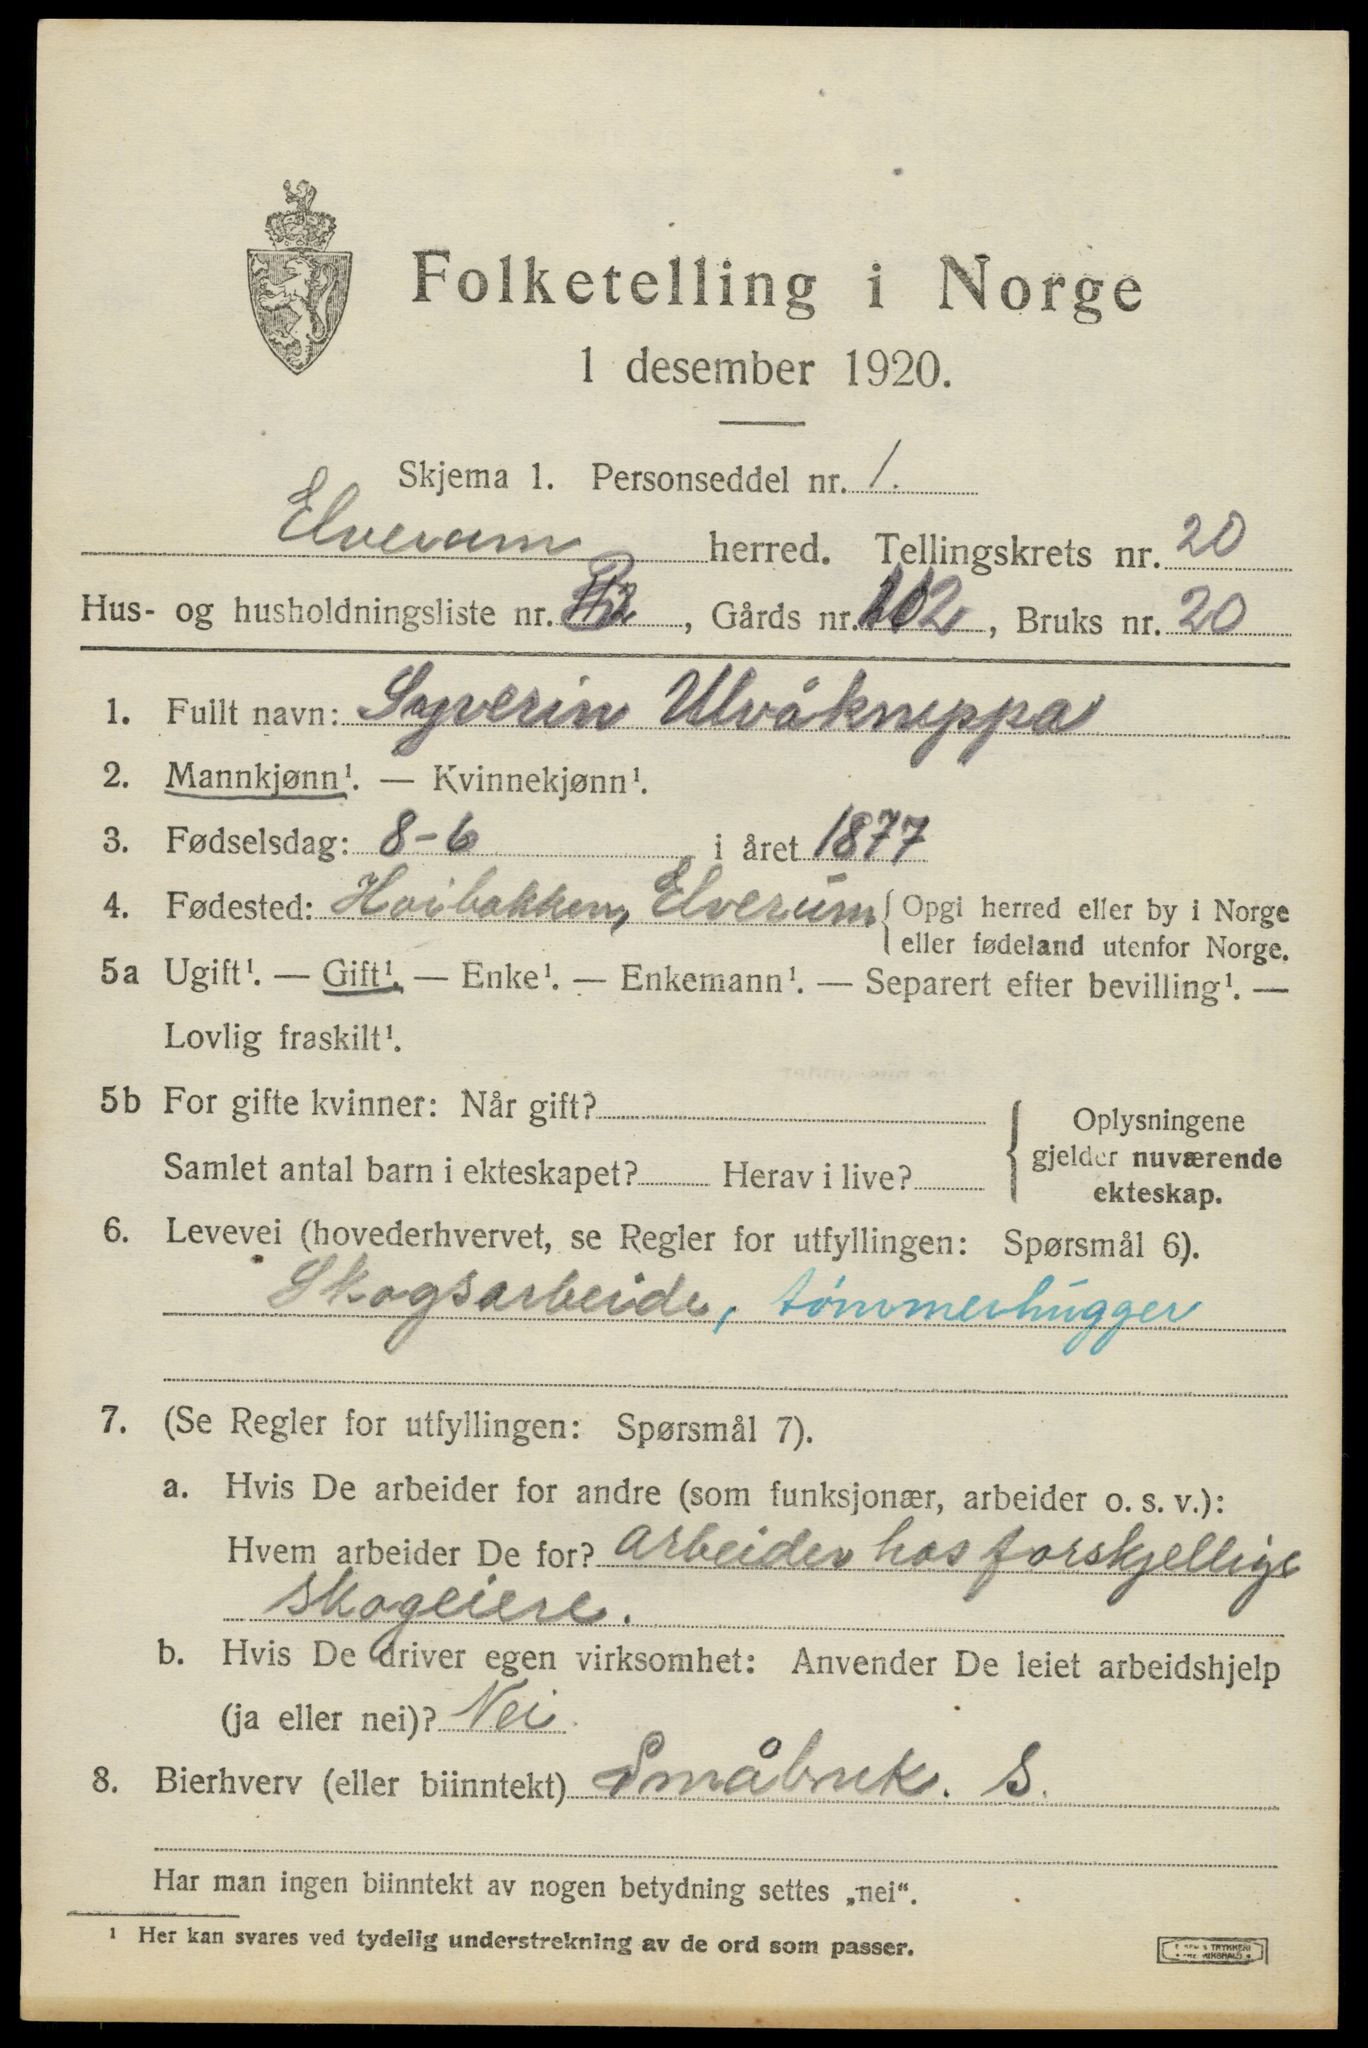 Folketelling i Norge
1 desember 1920.
Skjema 1. Personseddel nr. 1.
Elverum herred. Tellingskrets nr. 20
Hus- og husholdningsliste nr. , Gårds nr. 112, Bruks nr. 20
1. Fullt navn: Syverin Ulvåkneppa
2. Mannkjønn¹. — Kvinnekjønn¹.
3. Fødselsdag: 8-6 i året 1877
4. Fødested: Hoibakken, Elverum { Opgi herred eller by i Norge
eller fødeland utenfor Norge.
5a Ugift¹. — Gift¹. — Enke¹. — Enkemann¹. — Separert efter bevilling¹. —
Lovlig fraskilt¹.
5b For gifte kvinner: Når gift?
Samlet antal barn i ekteskapet? Herav i live?
{ Oplysningene
gjelder nuværende
ekteskap.
6. Levevei (hovederhvervet, se Regler for utfyllingen: Spørsmål 6).
Skogsarbeide, tømmerhugger
7. (Se Regler for utfyllingen: Spørsmål 7).
a. Hvis De arbeider for andre (som funksjonær, arbeider o. s. v.):
Hvem arbeider De for? arbeider hos forskjellige
skogeiere.
b. Hvis De driver egen virksomhet: Anvender De leiet arbeidshjelp
(ja eller nei)? Nei
8. Bierhverv (eller biinntekt) Småbruk. S.
Har man ingen biinntekt av nogen betydning settes „nei“.
¹ Her kan svares ved tydelig understrekning av de ord som passer.